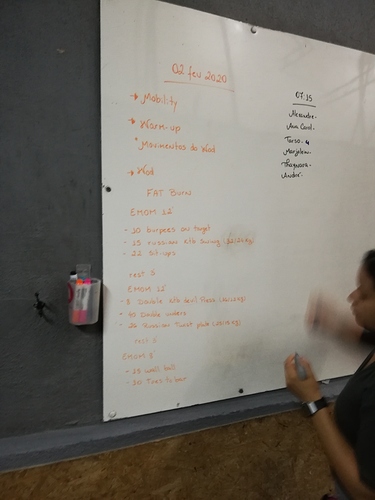 02 fev 2020
→ Mobility
→ Warm-up
• Movimentos do Wod
→ Wod
FAT BURN
EMOM 12'
- 10 burpees on target
- 15 russian ktb swing (32/24kg)
- 22 sit-ups
rest 5'
EMOM 12'
- 8 Double ktb devil Press
- 40 Double unders
- 20 Russian twist plate
rest 5'
EMOM 8'
- 15 wall ball
- 10 Toes to bar
07:15
Alexandre-
Ana Carol-
Tarso-
Marjolein-
Thaynara-
André-